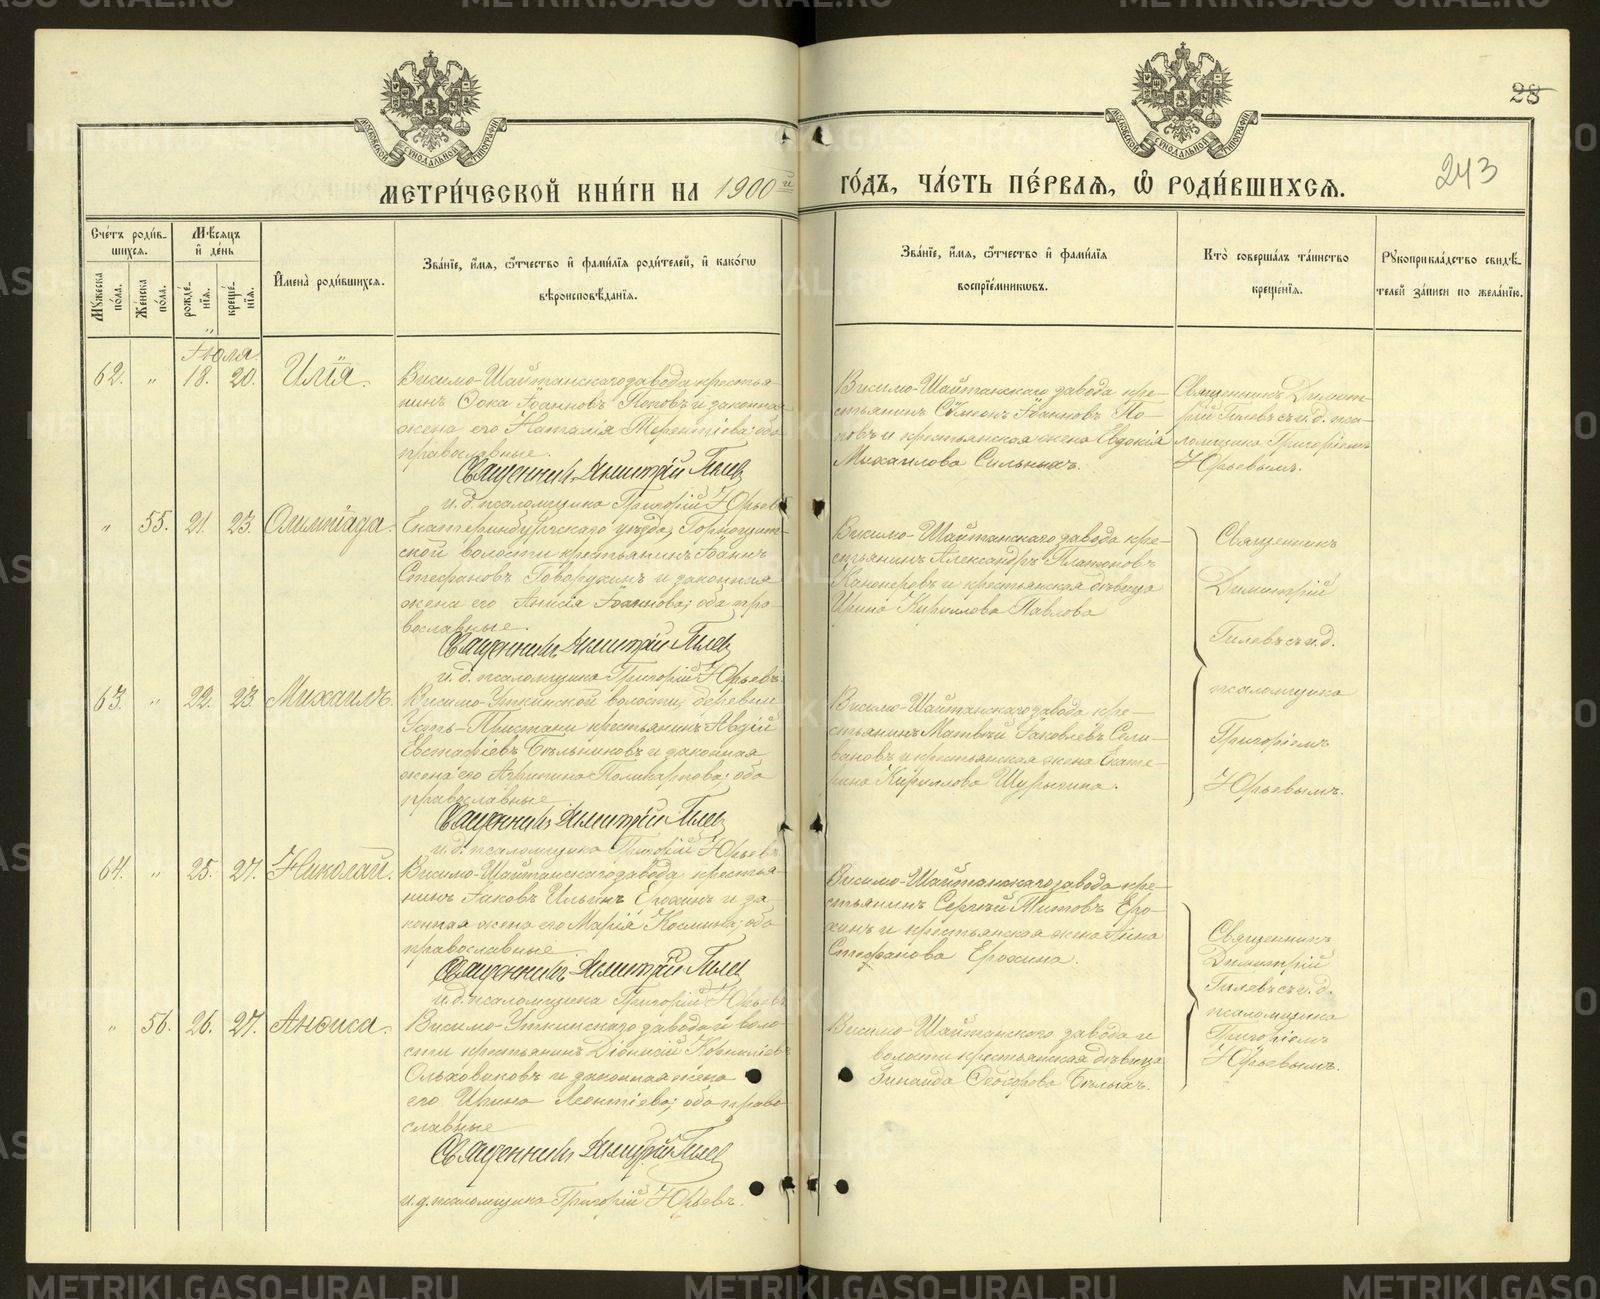 28
243
МОСКОВСКОЙ СѴНОДАЛЬНОЙ ТИПОГРАФІИ
МОСКОВСКОЙ СѴНОДАЛЬНОЙ ТИПОГРАФІИ
МЕТРИ́ЧЕСКОЙ КНИ́ГИ НА 1900й ГО́ДЪ, ЧА́СТЬ ПЕ́РВАѦ, Ѡ҆ РОДИ́ВШИХСѦ.
Сче́тъ роди́в-
шихся.
Мѣ́сяцъ
и҆ де́нь
Мꙋ́жеска по́ла.
Же́нска по́ла.
рожде́-нїя.
креще́-нїя.
И҆мена̀ роди́вшихся.
Зва́нїе, и҆́мя, ѻ҆́тчество и҆ фами́лїя роди́телей, и҆ како́гѡ
вѣроисповѣ́данїя.
Зва́нїе, и҆́мя, ѻ҆́тчество и҆ фами́лїя
воспрїе́мниковъ.
Кто̀ соверша́лъ та́инство
креще́нїя.
Рꙋкоприкла́дство свидѣ́-
телей за́писи по жела́нїю.
Іюля
62. " 18. 20. Илія.
Висимо-Шайтанскаго завода крестья-
нинъ Ѳока Іоанновъ Поповъ и законная
жена его Наталія Терентіева; оба
православные.
Священникъ Димитрій Гилев
и. д. псаломщика Григорій Юрьевъ
Висимо-Шайтанскаго завода кре-
стьянинъ Сѵмеонъ Іоанновъ По-
повъ и крестьянская жена Евдокія
Михаилова Сильныхъ.
Священникъ Димит-
рій Гилевъ съ и. д. пса-
ломщика Григоріемъ
Юрьевымъ.
" 55. 21. 23. Олимпіада.
Екатеринбургскаго уѣзда, Горнощит-
ской волости крестьянинъ Іоаннъ
Стефановъ Говорухинъ и законная
жена его Анисія Іоаннова; оба пра-
вославные.
Священникъ Димитрій Гилев
и. д. псаломщика Григорій Юрьевъ
Висимо-Шайтанскаго завода кре-
стьянинъ Александръ Платоновъ
Канонеровъ и крестьянская дѣвица
Ирина Кириллова Павлова
Священникъ
Димитрій
Гилевъ съ и. д.
псаломщика
Григоріемъ
Юрьевымъ.
63. " 22. 23. Михаилъ.
Висимо-Уткинской волости, деревни
Усть-Пристани крестьянинъ Авдій
Евстафіевъ Бѣльниковъ и законная
жена его Агрипина Поликарпова; оба
православные
Священникъ Димитрій Гилев
и. д. псаломщика Григорій Юрьевъ
Висимо-Шайтанскаго завода кре-
стьянинъ Матвѣй Іаковлевъ Сели-
вановъ и крестьянская жена Екате-
рина Кириллова Шурыгина.
64. " 25. 27. Николай.
Висимо-Шайтанскаго завода крестья-
нинъ Іаковъ Ильинъ Ерохинъ и за-
конная жена его Марія Космина; оба
православные
Священникъ Димитрій Гилев
и. д. псаломщика Григорій Юрьевъ
Висимо-Шайтанскаго завода кре-
стьянинъ Сергѣй Титовъ Еро-
хинъ и крестьянская жена Анна
Стефанова Ерохина.
Священникъ
Димитрій
Гилевъ съ и. д.
псаломщика
Григоріемъ
Юрьевымъ.
" 56. 26. 27. Анѳиса.
Висимо-Уткинскаго завода и воло-
сти крестьянинъ Діонисій Корниліевъ
Ольховиковъ и законная жена
его Ирина Леонтіева; оба право-
славные
Священникъ Димитрій Гилев
и. д. псаломщика Григорій Юрьевъ.
Висимо-Шайтанскаго завода и
волости крестьянская дѣвица
Зинаида Ѳеодорова Бѣлыхъ.
METRIKI.GASO-URAL.RU